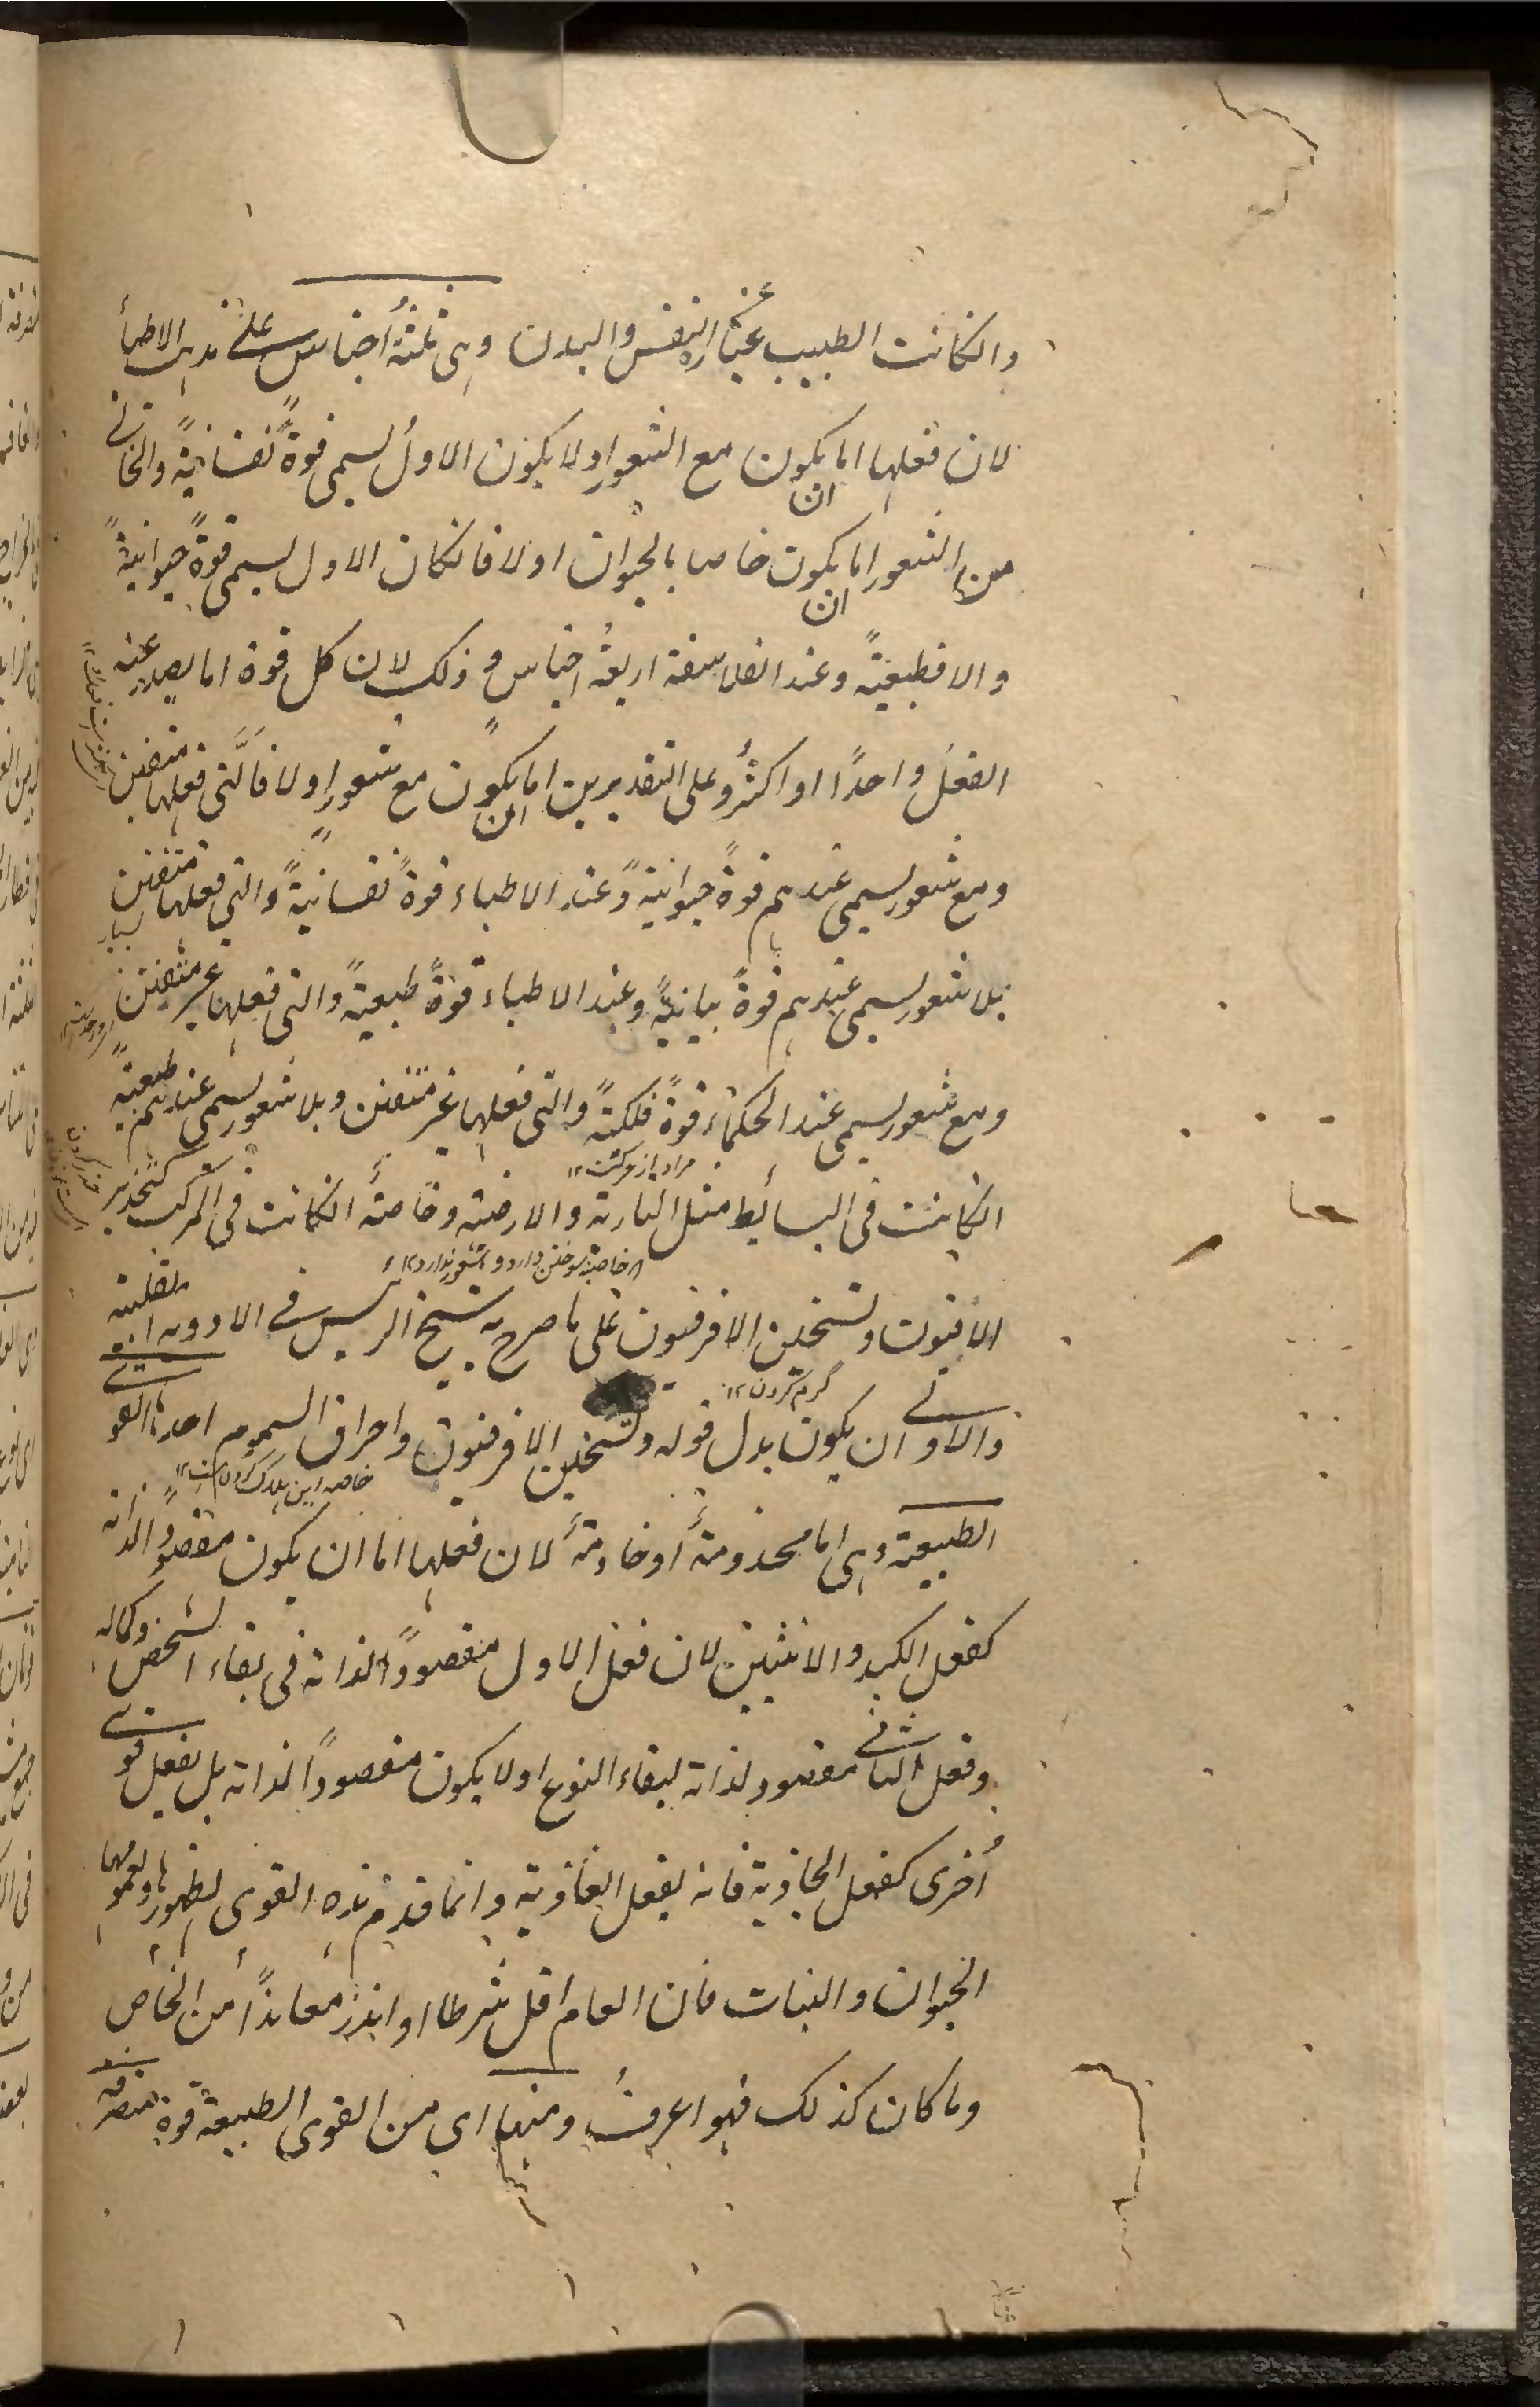 والكانت الطبيب عن النفس والبدن وهى ثلثة اجناس على مذهب الاطبأ
لان فعلها اما ان يكون مع الشعور او لا يكون الاول يسمى قوةً نفسانيةً والخا
من الشعور اما ان يكون خاصا بالحيوان اولا فانكان الاول يسمى قوةً حيوانيةً
والا فطبيعيةً وعند الفلاسفة اربعة اجناس وذلك لان كل قوة اما يصدر عنه
الفعل واحدًا او اكثر وعلى التقديرين اما ان يكون مع شعور اولا فالتى فعلها متفنن
ومع شعور يسمى عندهم قوةً حيوانيةً وعند الاطباء قوةً نفسانيةً والتى فعلها متفنن
بلا شعور يسمى عندهم قوةً نباتيةً وعند الاطباء قوةً طبيعيةً والتى فعلها غير متفنن
ومع شعور يسمى عند الحكماء قوةً فلكيةً والتى فعلها غير متفنن وبلا شعور يسمى عندهم طبيعيةً
مراد از حركت
الكانت فى البسائط مثل النارية والارضية وخاصةً الكانت فى المركب كتخدير
خاصة سوختن دارد و شعور ندارد
الافيون وتسخين الافرفيون على ما صرح به شيخ الرئيس فى الادوية القلبية
گرم كردن
والاولى ان يكون بدل قوله وتسخين الافرفيون واحراق السموم احدها القو
خاصه اين هلاك كردن است
الطبيعية وهى اما مخدومةً او خادمةً لان فعلها اما ان يكون مقصودًا لذاته
كفعل الكبد والانثيين لان فعل الاول مقصودًا لذاته فى بقاء الشخص وكماله
وفعل الثانى مقصود لذاته لبقاء النوع او لا يكون مقصودًا لذاته بل لفعل قوى
أخرى كفعل الجاذبة فانه لفعل الغاذية وانما قدم هذه القوى لظهورها وعمومها
الحيوان والنبات فان العام اقل شرطا او اندر معاندًا من الخاص
وما كان كذلك فهو اعرف ومنها اى من القوى الطبيعية قوة متصرفة